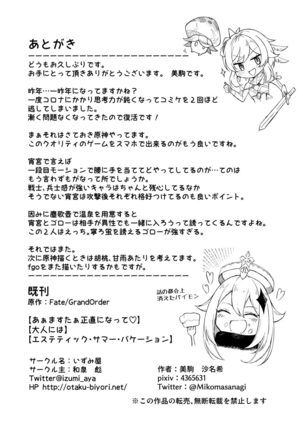 あとがき
どうもお久しぶりです。
お手にとって頂きありがとうございます。 美駒です。
昨年…一昨年になってますかね?
一度コロナにかかり思考力が鈍くなってコミケを2回ほど
逃してしまいました。
漸く問題なくなってきたので復活です!
まぁそれはさておき原神やってます。
このクオリティのゲームをスマホで出来るのがもう良いですね。
宵宮で言えば
一段目モーションで勝手に手を当ててどやってしてるのが…てのは
もう言わずもがなって所でしょうか。
戦士、兵士感が強いキャラはちゃんと残心してるなか
そうでない宵宮は攻撃後それぞれ格好つけてるのも良いポイント。
因みに塵歌壺で温泉を用意すると
宵宮とゴローは相手が異性でも一緒に入ろうって誘ってくるんですよね。
この2人はえっち。寧ろ蛍を誘えるゴローが強すぎる。
それではまた。
次に原神描くときは胡桃、甘雨あたりを考えてます。
fgoをまた描いたりするかもですが。
話の都合上
消えたパイモン
既刊
原作:Fate/GrandOrder
【あぁますたぁ正直になって♡】
【大人には】
【エステティック・サマー・バケーション】
サークル名:いずみ屋
サークル主:和泉 彪
Twitter@izumi_aya
HP http://otaku-biyori.net/
作者:美駒 沙名希
pixiv:4365631
Twitter:@Mikomasanagi
※この作品の転売、無断転載を禁止します